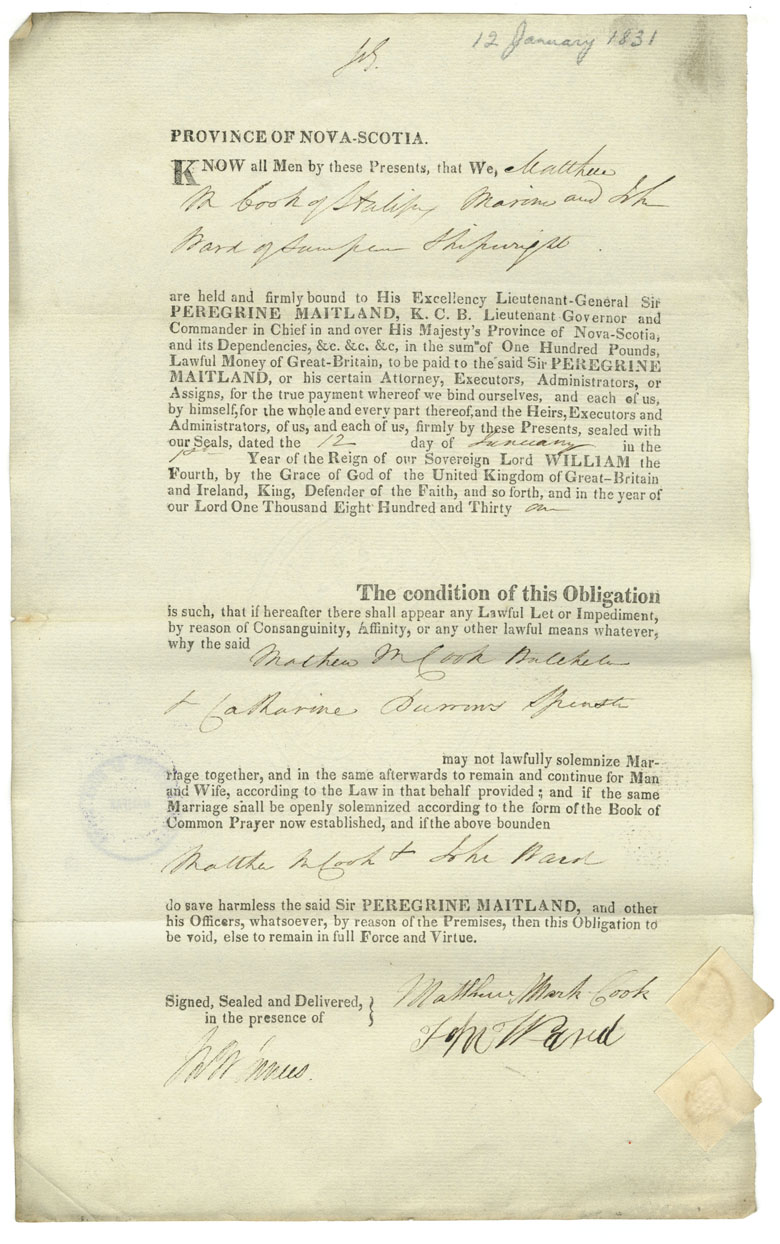 12 January 1831
PROVINCE OF NOVA-SCOTIA.
KNOW all Men by these Presents, that We, Matthew
M Cook of Halifax Marine and John
Ward of same place Shipwright
are held and firmly bound to His Excellency Lieutenant-General Sir
PEREGRINE MAITLAND, K. C. B. Lieutenant Governor and
Commander in Chief in and over His Majesty's Province of Nova-Scotia,
and its Dependencies, &c. &c. &c, in the sum of One Hundred Pounds,
Lawful Money of Great-Britain, to be paid to the said Sir PEREGRINE
MAITLAND, or his certain Attorney, Executors, Administrators, or
Assigns, for the true payment whereof we bind ourselves, and each of us,
by himself, for the whole and every part thereof, and the Heirs, Executors and
Administrators, of us, and each of us, firmly by these Presents, sealed with
our Seals, dated the 12 day of January in the
1st Year of the Reign of our Sovereign Lord WILLIAM the
Fourth, by the Grace of God of the United Kingdom of Great-Britain
and Ireland, King, Defender of the Faith, and so forth, and in the year of
our Lord One Thousand Eight Hundred and Thirty one
The condition of this Obligation
is such, that if hereafter there shall appear any Lawful Let or Impediment,
by reason of Consanguinity, Affinity, or any other lawful means whatever,
why the said
Mathew M Cook Batchelor
& Catharine Burrows Spinster
may not lawfully solemnize Mar-
riage together, and in the same afterwards to remain and continue for Man
and Wife, according to the Law in that behalf provided; and if the same
Marriage shall be openly solemnized according to the form of the Book of
Common Prayer now established, and if the above bounden
Matthew M Cook & John Ward
do save harmless the said Sir PEREGRINE MAITLAND, and other
his Officers, whatsoever, by reason of the Premises, then this Obligation to
be void, else to remain in full Force and Virtue.
Signed, Sealed and Delivered,
in the presence of
Matthew Mark Cook
John Ward